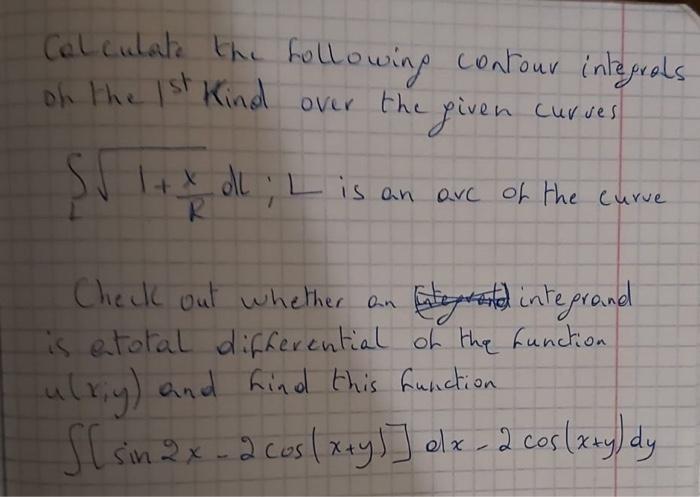 Calculate the following contour integrals
oh the 1st Kind over the given curves
∫L √(1+x/R) dl ; L is an arc of the curve
Check out whether an integrand
is a total differential of the function
u(x;y) and find this function
∫[sin 2x - 2 cos(x+y)] dx - 2 cos(x+y) dy